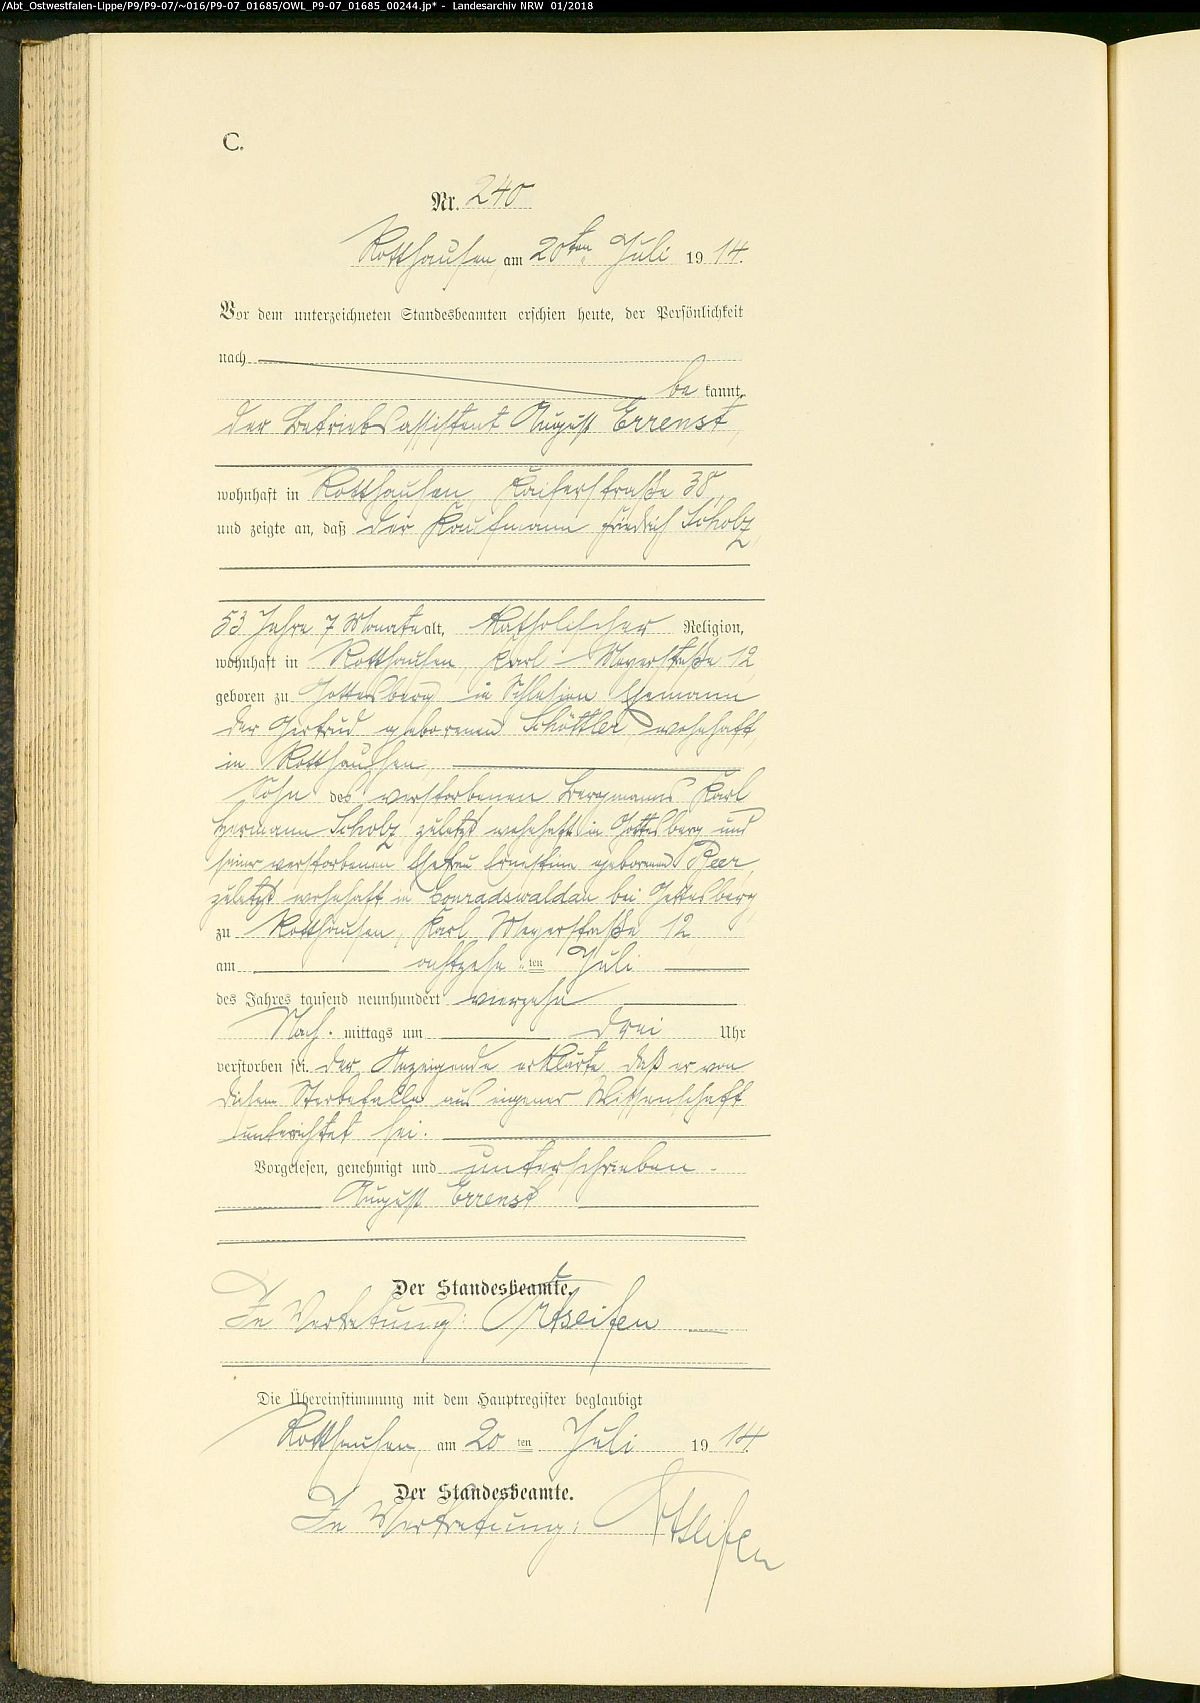 /Abt_Ostwestfalen-Lippe/P9/P9-07/~016/P9-07_01685/OWL_P9-07_01685_00244.jp* - Landesarchiv NRW 01/2018
C.
Nr. 240
Rotthausen, am 20ten Juli 1914.
Vor dem unterzeichneten Standesbeamten erschien heute, der Persönlichkeit
nach
be kannt,
der Betriebsassistent August Errenst,
wohnhaft in Rotthausen, Kaiserstraße 38,
und zeigte an, daß der Kaufmann Friedrich Scholz,
53 Jahre 7 Monate alt, katholischer Religion,
wohnhaft in Rotthausen, Karl-Meyerstraße 12,
geboren zu Gottesberg in Schlesien, Ehemann
der Gertrud geborenen Schöttler, wohnhaft
in Rotthausen,
Sohn des verstorbenen Bergmanns Karl
Hermann Scholz, zuletzt wohnhaft in Gottesberg und
seiner verstorbenen Ehefrau Ernestine geborenen
zuletzt wohnhaft in Conradswaldau bei Gottesberg,
zu Rotthausen, Karl Meyerstraße 12
am achtzehnten Juli
des Jahres tausend neunhundert vierzehn
Nach mittags um drei Uhr
verstorben sei. Der Anzeigende erklärte, daß er von
diesem Sterbefalle aus eigener Wissenschaft
unterrichtet sei.
Vorgelesen, genehmigt und unterschrieben.
August Errenst
Der Standesbeamte.
In Vertretung:
Die Übereinstimmung mit dem Hauptregister beglaubigt
Rotthausen, am 20ten Juli 1914
Der Standesbeamte.
In Vertretung: